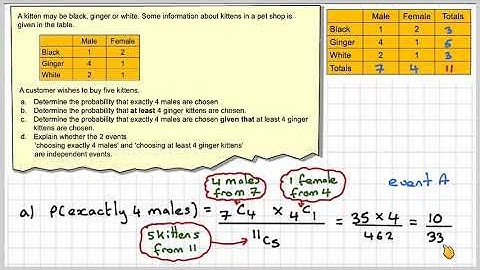 A kitten may be black, ginger or white. Some information about kittens in a pet shop is
given in the table.
Male Female
Black 1 2
Ginger 4 1
White 2 1
A customer wishes to buy five kittens.
a. Determine the probability that exactly 4 males are chosen
b. Determine the probability that at least 4 ginger kittens are chosen.
c. Determine the probability that exactly 4 males are chosen given that at least 4 ginger
kittens are chosen.
d. Explain whether the 2 events
'choosing exactly 4 males' and 'choosing at least 4 ginger kittens'
are independent events.
Male Female Totals
Black 1 2 3
Ginger 4 1 5
White 2 1 3
Totals 7 4 11
4 males
from 7
1 female
from 4
event A
a) P(exactly 4 males) = 7C4 × 4C1 / 11C5 = 35 × 4 / 462 = 10 / 33
5 kittens
from 11